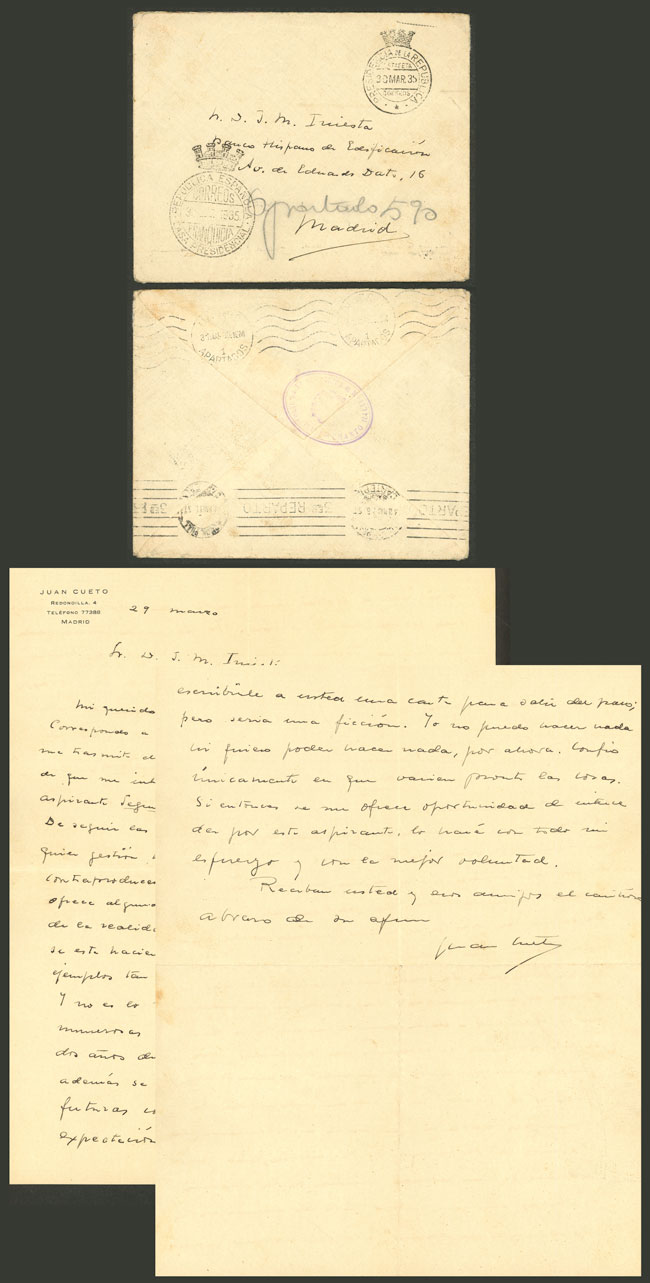 PRESIDENCIA DE LA REPUBLICA
ESTAFETA
30 MAR. 35
CORREOS
Sr. D. J. M. Iniesta
Banco Hispano de Edificación
Av. de Eduardo Dato, 16
Apartado 590
Madrid
REPUBLICA ESPAÑOLA
CORREOS
1935
FRANQUICIA
CASA PRESIDENCIAL
APARTADOS
APARTADOS
3er REPARTO
REPARTO
JUAN CUETO
REDONDILLA, 4
TELÉFONO 77386
MADRID
29 marzo
Sr. D. J. M. Iniest
Mi querido
Correspondo a
me trasmite el
de que me int
aspirante Segun
De seguir las
quier gestión
contraproducen
ofrece alguno
de la realida
se está hacien
ejemplos tan
Y no es lo
numerosas
dos años de
además se
futuras
expectación
escribirle a usted una carta para salir del paso;
pero sería una ficción. Yo no puedo hacer nada
ni quiero poder hacer nada, por ahora. Confío
únicamente en que varien pronto las cosas.
Si entonces se me ofrece oportunidad de interce
der por este aspirante, lo haré con todo mi
esfuerzo y con la mejor voluntad.
Reciban usted y esos amigos el cariñoso
abrazo de su afmo
Juan Cueto